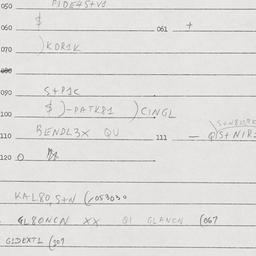 050 PIDE4S+V1
$
060 061 +
070 )KOR1K
080
090 S+P1C
100 $ )-PATK81 )CINGL
110 BENDL3X QU 111 —
120 O
KAL80, S+N (/053030
GL80NCN XX QI GLANCN (067
G1DEXT1 (207